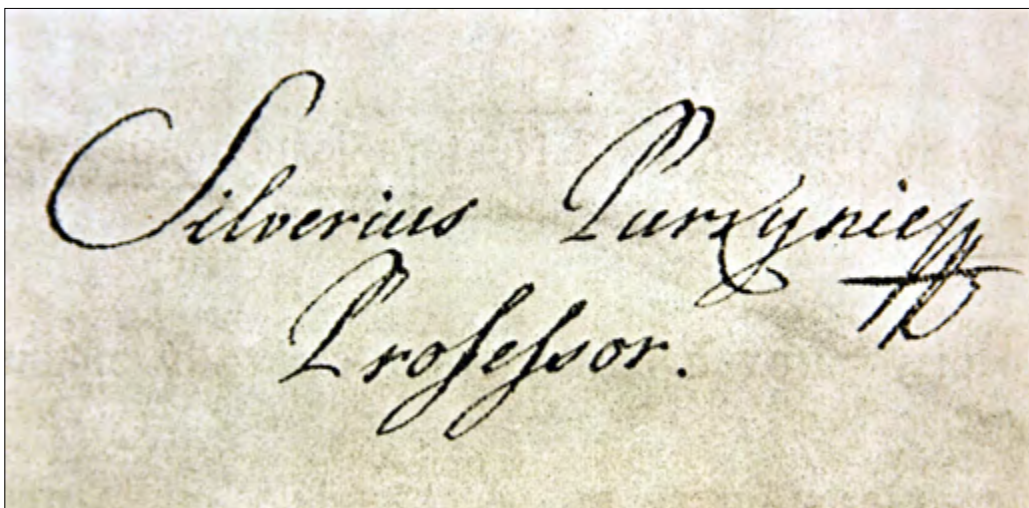 Silverius Purzyniecz
Professor.